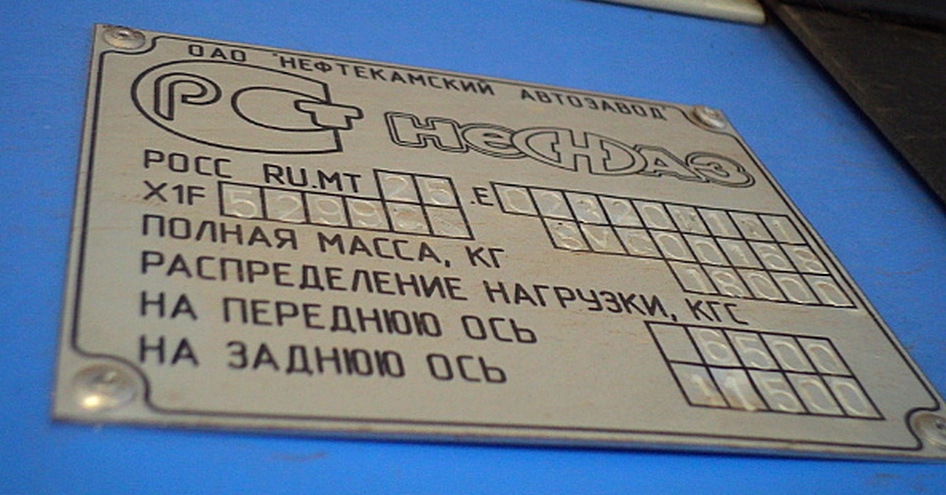 ОАО "НЕФТЕКАМСКИЙ АВТОЗАВОД"
РСТ НЕФАЗ
РОСС RU.MT 25 .E
X1F
ПОЛНАЯ МАССА, КГ 18000
РАСПРЕДЕЛЕНИЕ НАГРУЗКИ, КГС
НА ПЕРЕДНЮЮ ОСЬ 6500
НА ЗАДНЮЮ ОСЬ 11500